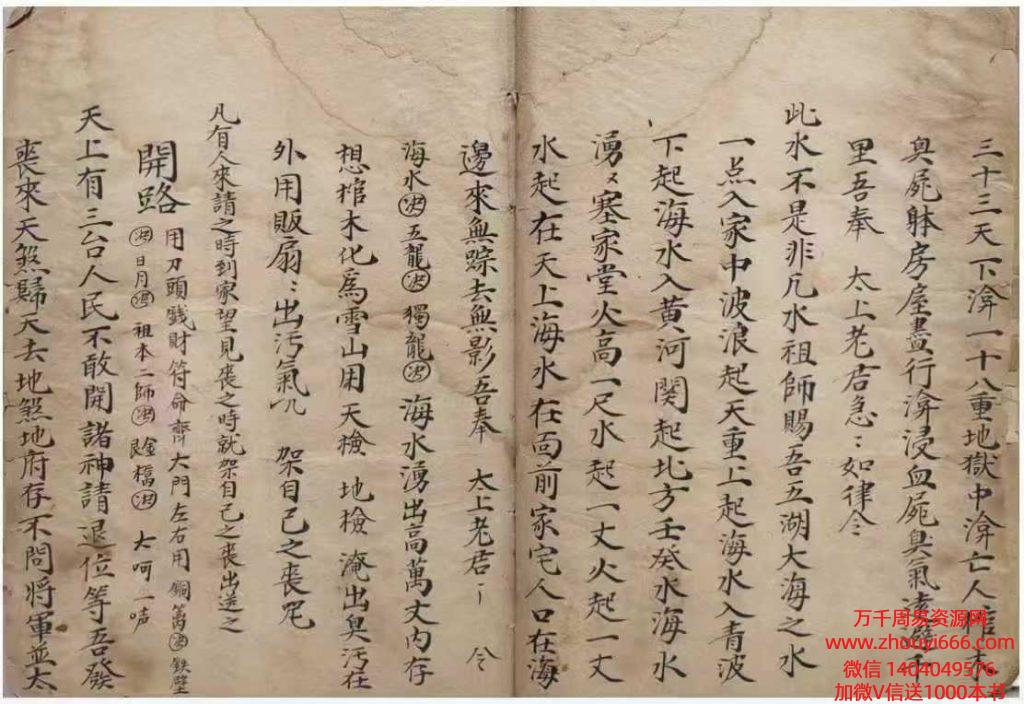 三十三天下渰一十八重地獄中渰亡人棺木
臭屍躰房屋晝行渰浸血屍臭氣遠避千
里吾奉　太上老君急〻如律令
此水不是非凡水祖師賜吾五湖大海之水
一点入家中波浪起天重上起海水入青波
下起海水入黄河関起北方壬癸水海水
湧〻塞家堂火高一尺水起一丈火起一丈
水起在天上海水在面前家宅人口在海
邊來無踪去無影吾奉　太上老君〻　令
海水五龍獨龍海水湧出高萬丈内存
想棺木化為雪山用天檢　地檢　淹出臭汚在
外用販扇〻出汚氣　架自己之喪咒
凡有人來請之時到家望見喪之時就架自己之喪出送之
開路　用刀頭錢財符命齊大門左右用銅萬鉄壁
日月　祖本二師　橋　大呵一声
天上有三台人民不敢開諸神請退位等吾發
喪來天煞歸天去地煞地府存不問將軍並太
万千周易资源网
www.zhouyi666.com
微信 1404049576
加微V信送1000本书